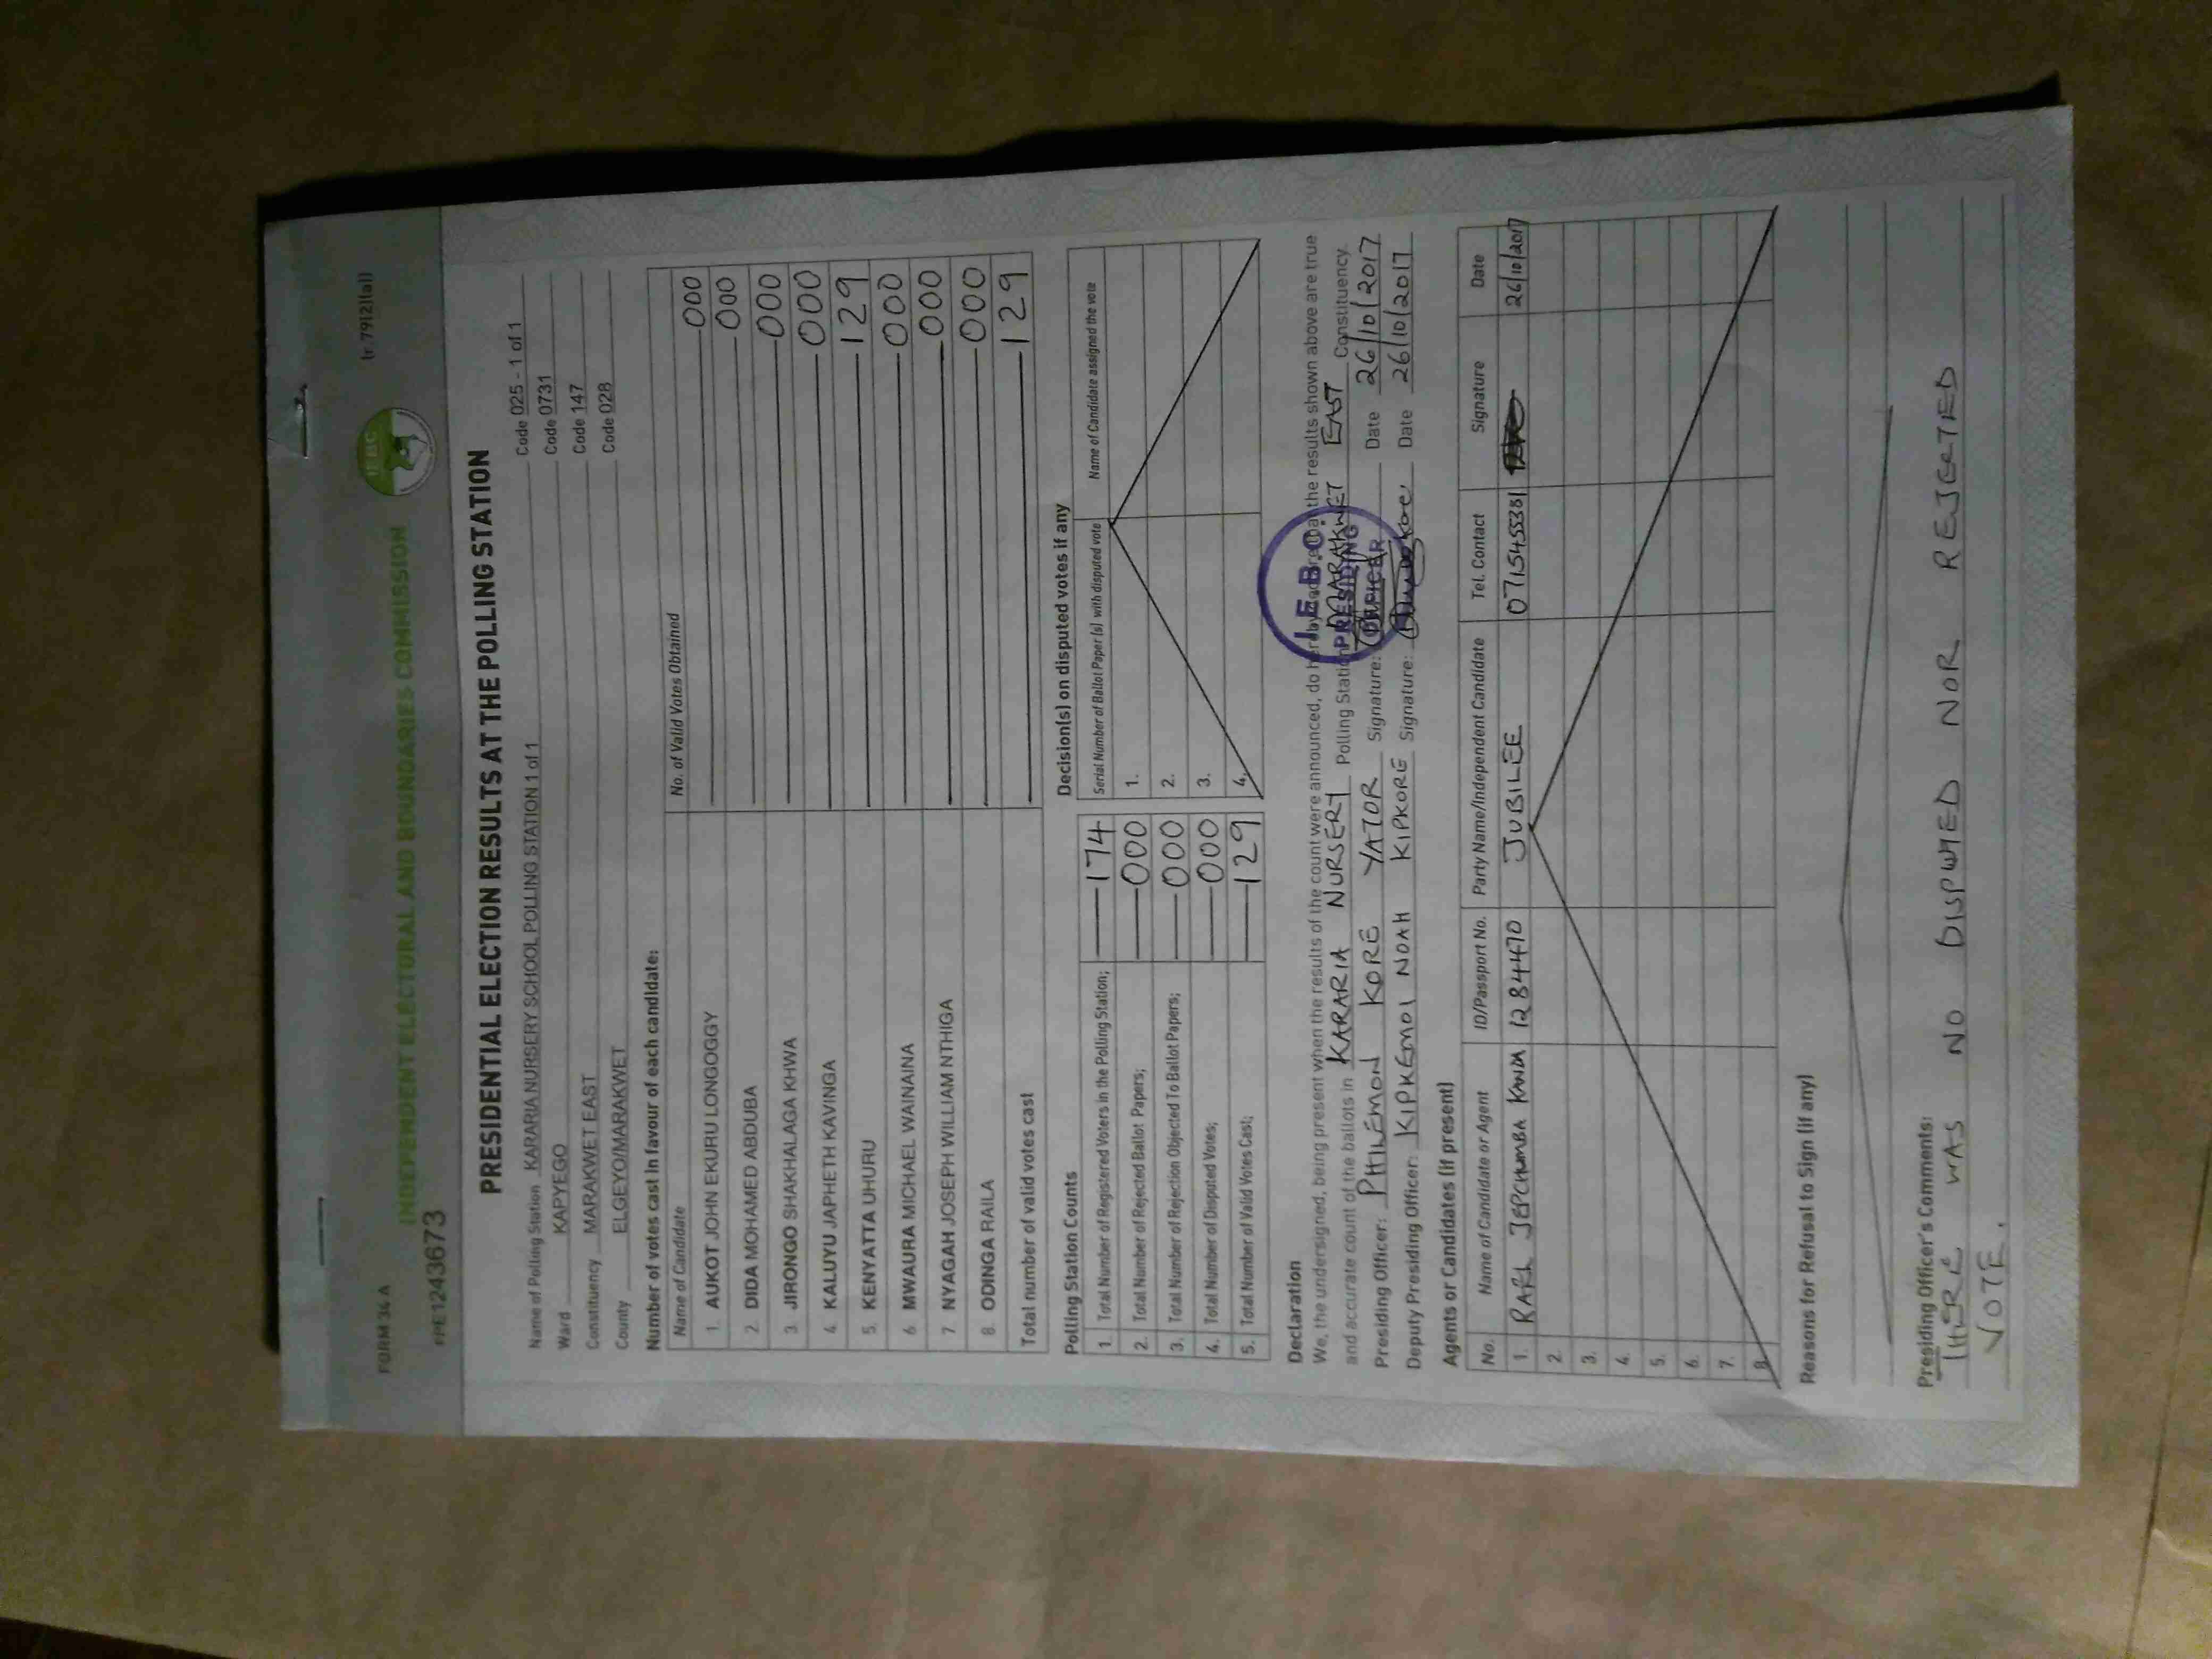 FORM 34 A (r.79(2)(a))
IEBC
INDEPENDENT ELECTORAL AND BOUNDARIES COMMISSION
PE1243673
PRESIDENTIAL ELECTION RESULTS AT THE POLLING STATION
Name of Polling Station KARARIA NURSERY SCHOOL POLLING STATION 1 of 1 Code 025 - 1 of 1
Ward KAPYEGO Code 0731
Constituency MARAKWET EAST Code 147
County ELGEYO/MARAKWET Code 028
Number of votes cast in favour of each candidate:
Name of Candidate No. of Valid Votes Obtained
1. AUKOT JOHN EKURU LONGOGGY 000
2. DIDA MOHAMED ABDUBA 000
3. JIRONGO SHAKHALAGA KHWA 000
4. KALUYU JAPHETH KAVINGA 000
5. KENYATTA UHURU 129
6. MWAURA MICHAEL WAINAINA 000
7. NYAGAH JOSEPH WILLIAM NTHIGA 000
8. ODINGA RAILA 000
Total number of valid votes cast 129
Polling Station Counts
1. Total Number of Registered Voters in the Polling Station; 174
2. Total Number of Rejected Ballot Papers; 000
3. Total Number of Rejection Objected To Ballot Papers; 000
4. Total Number of Disputed Votes; 000
5. Total Number of Valid Votes Cast; 129
Decision(s) on disputed votes if any
Serial Number of Ballot Paper (s) with disputed vote Name of Candidate assigned the vote
1.
2.
3.
4.
Declaration
We, the undersigned, being present when the results of the count were announced, do hereby declare that the results shown above are true
and accurate count of the ballots in KARARIA NURSERY Polling Station MARAKWET EAST Constituency.
Presiding Officer: PHILEMON KORE YATOR Signature: Date 26/10/2017
Deputy Presiding Officer: KIPKEMOI NOAH KIPKORE Signature: Date 26/10/2017
I.E.B.C.
PRESIDING
OFFICER
Agents or Candidates (if present)
No. Name of Candidate or Agent ID/Passport No. Party Name/Independent Candidate Tel. Contact Signature Date
1. JEPCHUMBA 12844470 JUBILEE 0715455381 26/10/2017
2.
3.
4.
5.
6.
7.
8.
Reasons for Refusal to Sign (if any)
Presiding Officer's Comments:
THERE WAS NO DISPUTED NOR REJECTED
VOTE.